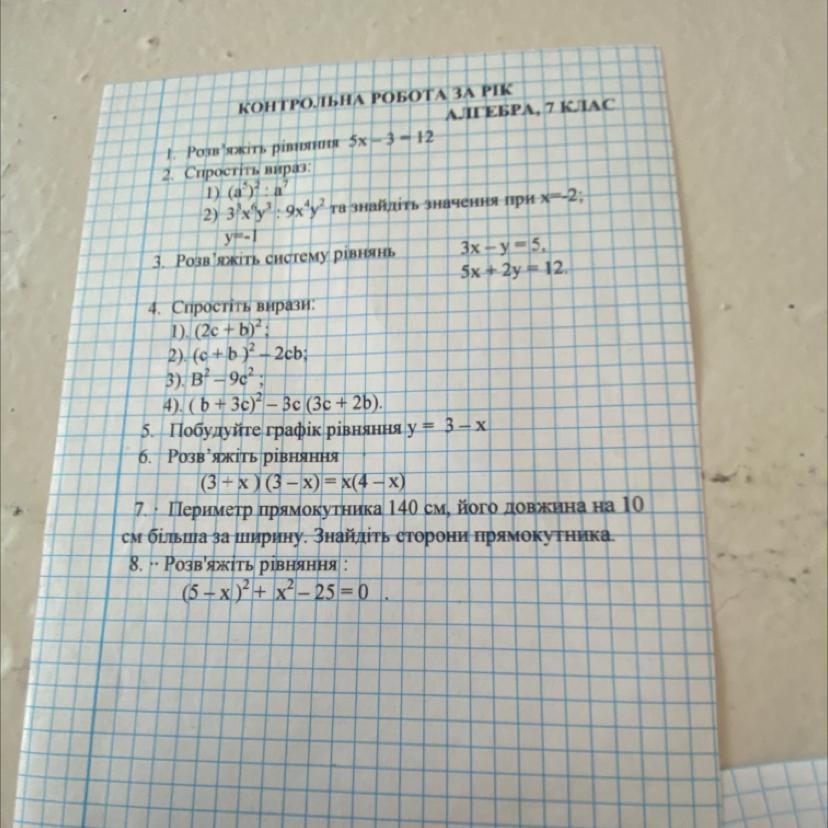 КОНТРОЛЬНА РОБОТА ЗА РІК
АЛГЕБРА, 7 КЛАС
1. Розв'яжіть рівняння 5x – 3 = 12
2. Спростіть вираз:
1) (a⁵)² : a⁷
2) 3³x⁶y³ : 9x⁴y² та знайдіть значення при x=-2;
y=-1
3. Розв'яжіть систему рівнянь 3x – y = 5,
5x + 2y = 12.
4. Спростіть вирази:
1). (2c + b)²;
2). (c + b )² – 2cb;
3). B² – 9c² ;
4). ( b + 3c)² – 3c (3c + 2b).
5. Побудуйте графік рівняння y = 3 – x
6. Розв'яжіть рівняння
(3 + x ) (3 – x) = x(4 – x)
7. · Периметр прямокутника 140 см, його довжина на 10
см більша за ширину. Знайдіть сторони прямокутника.
8. ·· Розв'яжіть рівняння :
(5 – x )² + x² – 25 = 0 .